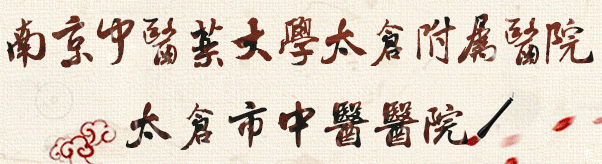 南京中醫藥大學太倉附屬醫院
太倉市中醫醫院